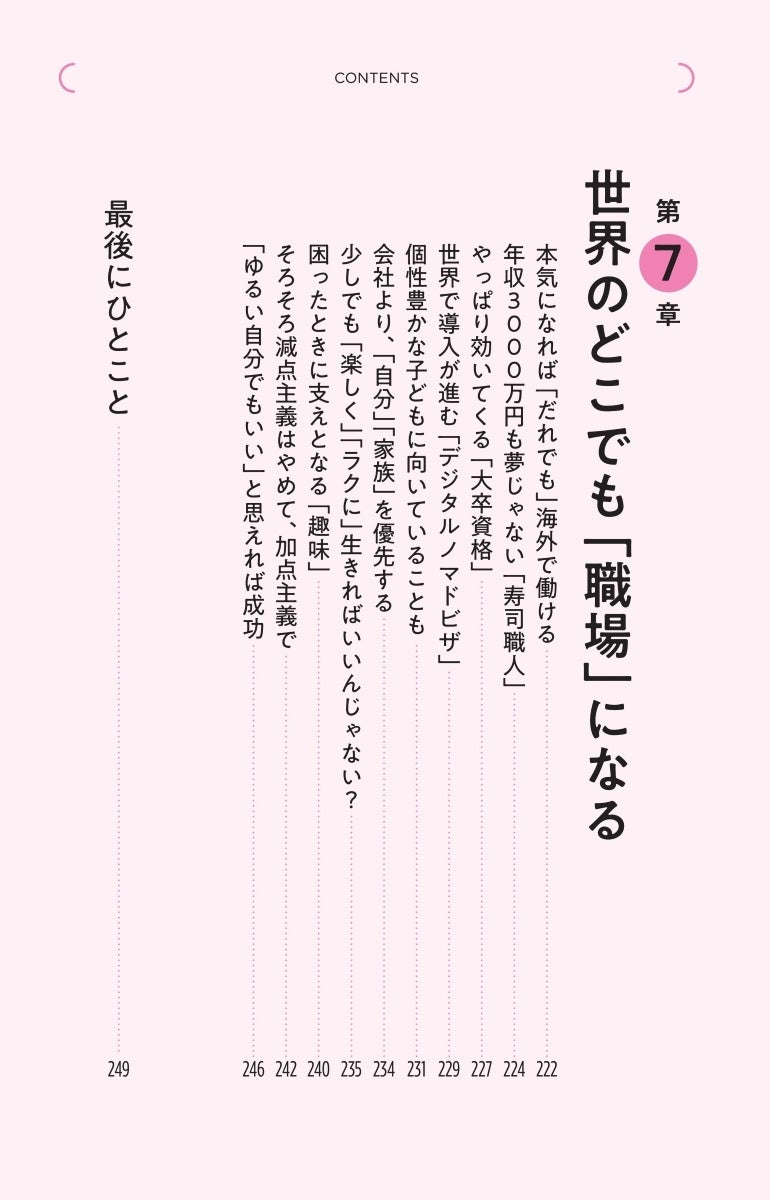 CONTENTS
第7章
世界のどこでも「職場」になる
本気になれば「だれでも」海外で働ける 222
年収3000万円も夢じゃない「寿司職人」 224
やっぱり効いてくる「大卒資格」 227
世界で導入が進む「デジタルノマドビザ」 229
個性豊かな子どもに向いていることも 231
会社より、「自分」「家族」を優先する 234
少しでも「楽しく」「ラクに」生きればいいんじゃない? 235
困ったときに支えとなる「趣味」 240
そろそろ減点主義はやめて、加点主義で 242
「ゆるい自分でもいい」と思えれば成功 246
最後にひとこと 249